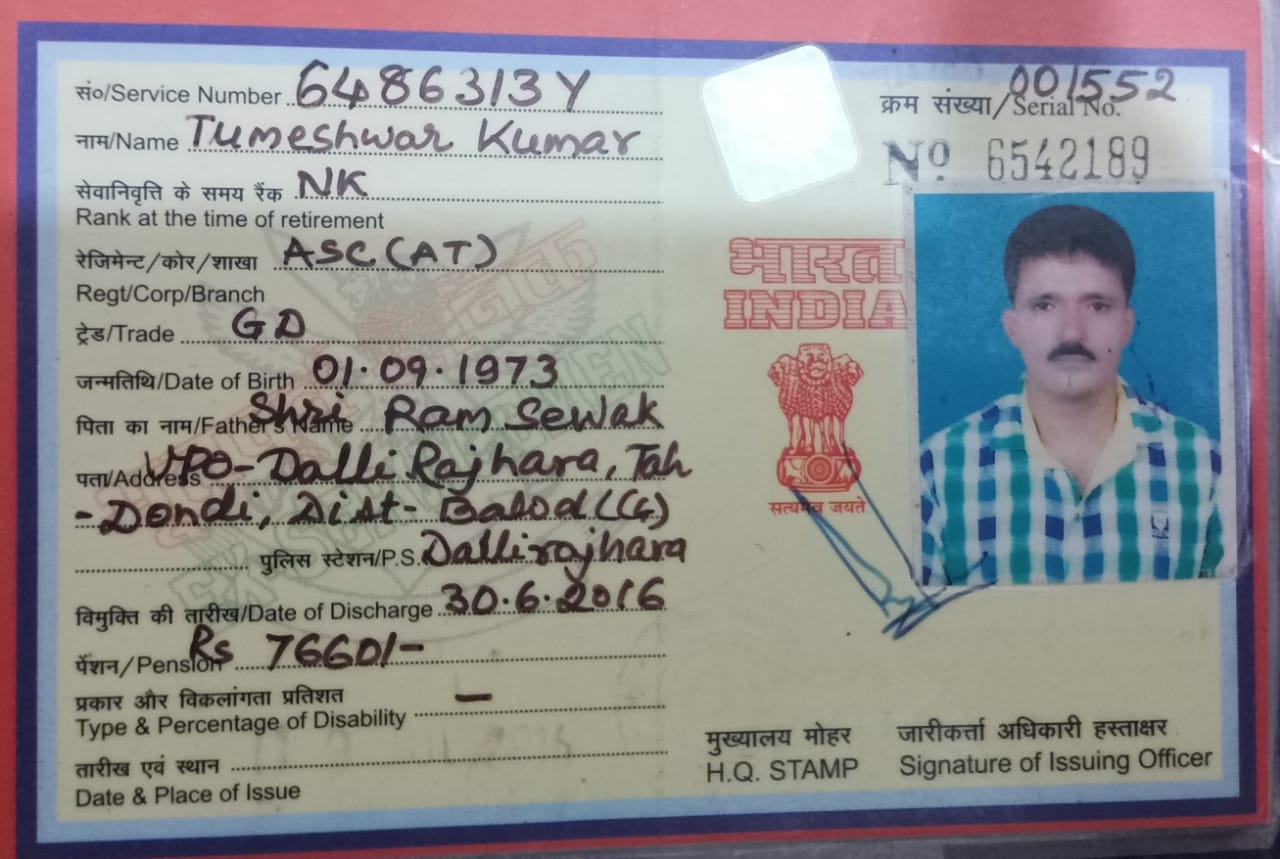 सं०/Service Number 6486313Y
नाम/Name Tumeshwar Kumar
सेवानिवृत्ति के समय रैंक NK
Rank at the time of retirement
रेजिमेन्ट/कोर/शाखा ASC(AT)
Regt/Corp/Branch
ट्रेड/Trade GD
जन्मतिथि/Date of Birth 01.09.1973
पिता का नाम/Father's Name Shri Ram Sewak
पता/Address VPO-Dalli Rajhara, Teh
-Dondi, Dist- Balod (CG)
पुलिस स्टेशन/P.S. Dallirajhara
विमुक्ति की तारीख/Date of Discharge 30.6.2016
पेंशन/Pension Rs 7660/-
प्रकार और विकलांगता प्रतिशत —
Type & Percentage of Disability
तारीख एवं स्थान
Date & Place of Issue
001552
क्रम संख्या/Serial No.
No 6542189
भारत
INDIA
सत्यमेव जयते
मुख्यालय मोहर
H.Q. STAMP
जारीकर्त्ता अधिकारी हस्ताक्षर
Signature of Issuing Officer
EX SERVICEMEN